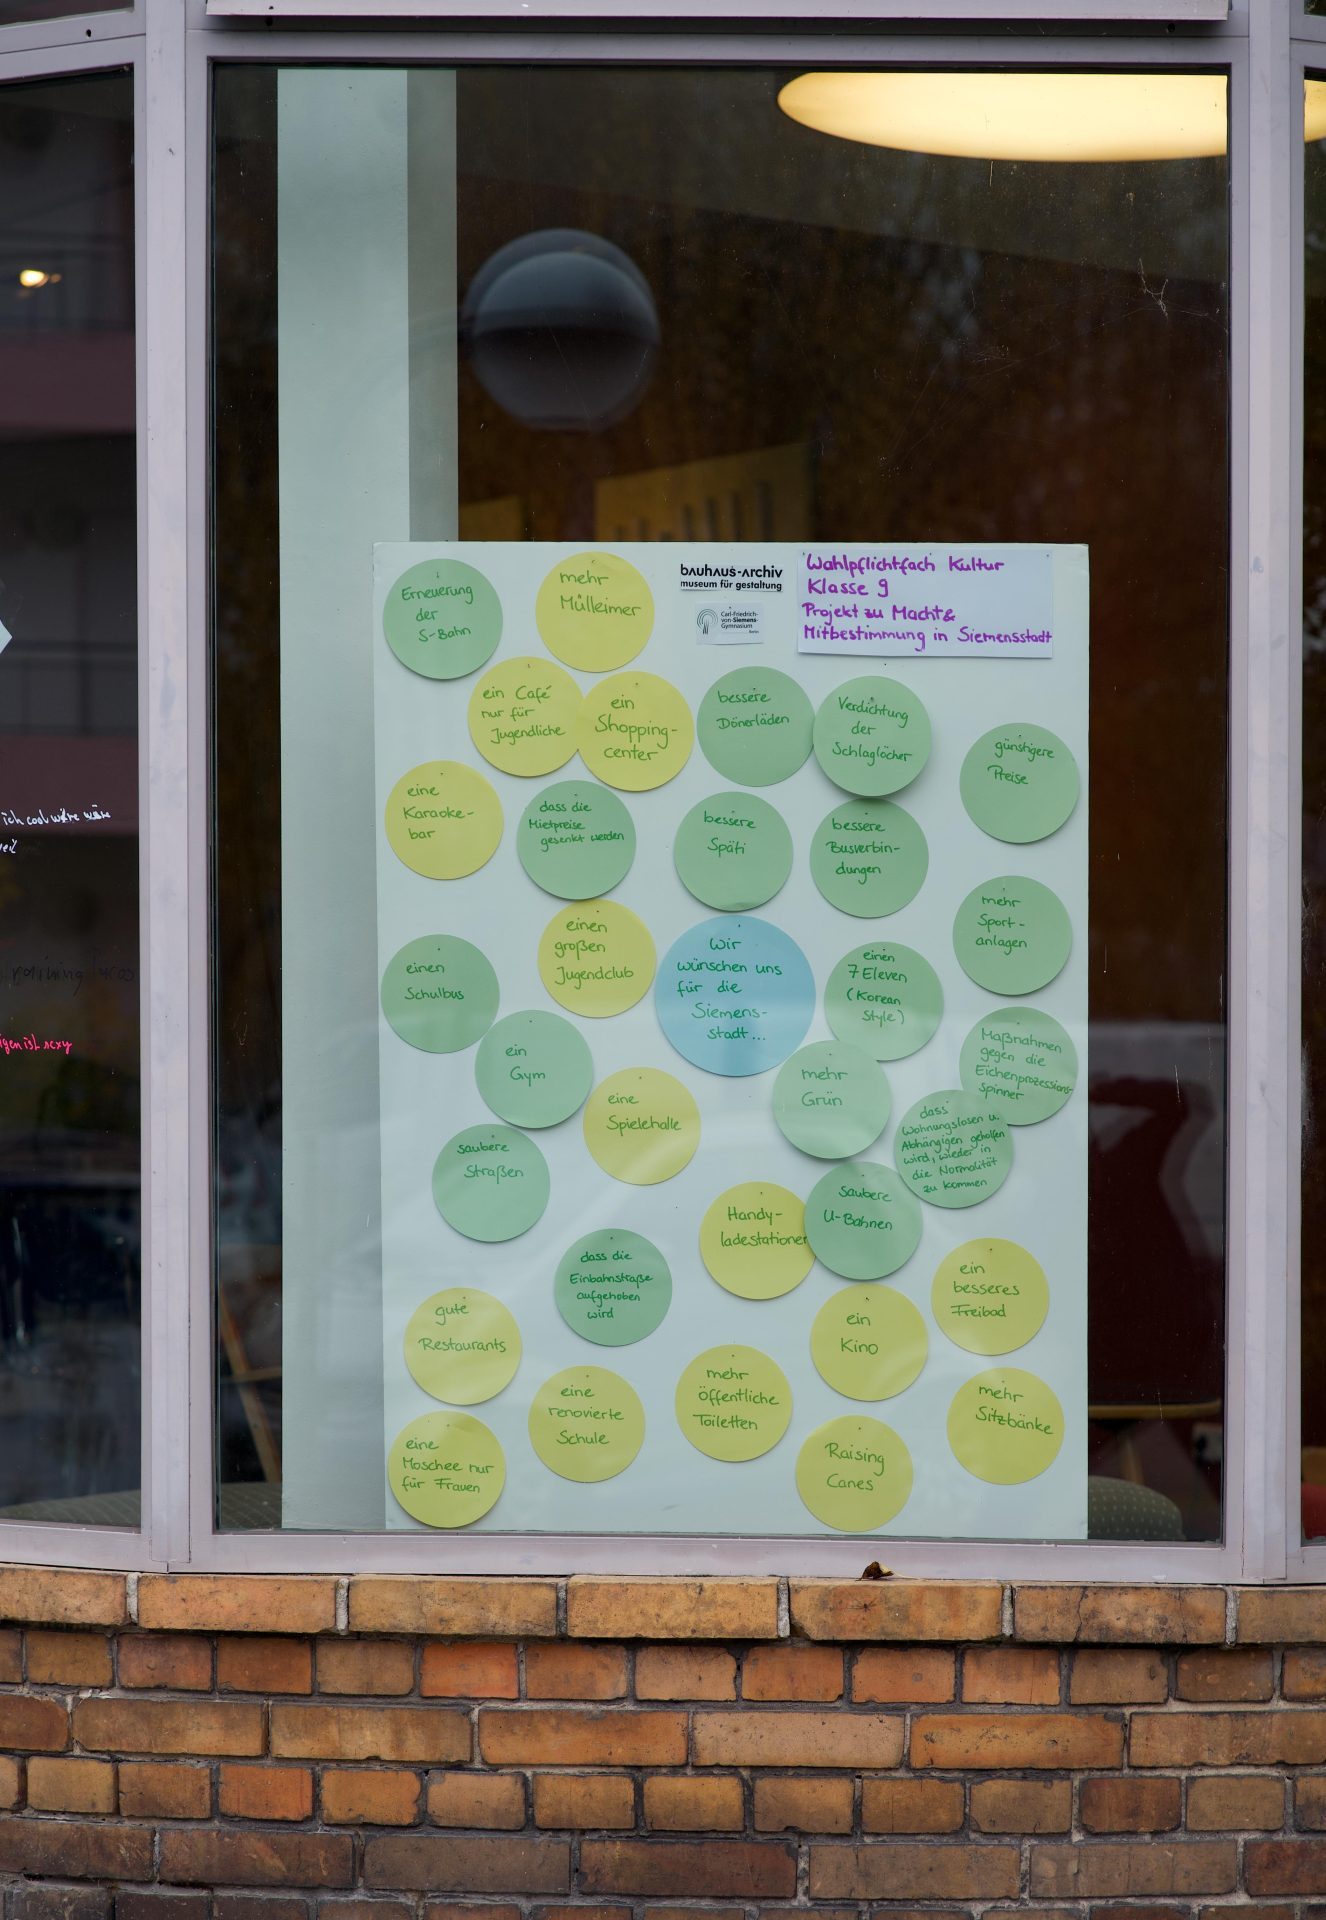 bauhaus-archiv
museum für gestaltung
Carl-Friedrich-
von-Siemens-
Gymnasium
Berlin
Wahlpflichtfach Kultur
Klasse 9
Projekt zu Macht &
Mitbestimmung in Siemensstadt
Erneuerung
der
S-Bahn
mehr
Mülleimer
ein Café
nur für
Jugendliche
ein
Shopping-
center
bessere
Dönerläden
Verdichtung
der
Schlaglöcher
günstigere
Preise
eine
Karaoke-
bar
dass die
Mietpreise
gesenkt werden
bessere
Späti
bessere
Busverbin-
dungen
mehr
Sport-
anlagen
einen
Schulbus
einen
großen
Jugendclub
Wir
wünschen uns
für die
Siemens-
stadt...
einen
7 Eleven
(Korean
Style)
Maßnahmen
gegen die
Eichenprozessions-
spinner
ein
Gym
eine
Spielehalle
mehr
Grün
dass
Wohnungslosen u.
Abhängigen geholfen
wird, wieder in
die Normalität
zu kommen
saubere
Straßen
Handy-
ladestationen
saubere
U-Bahnen
dass die
Einbahnstraße
aufgehoben
wird
ein
besseres
Freibad
gute
Restaurants
ein
Kino
eine
renovierte
Schule
mehr
öffentliche
Toiletten
mehr
Sitzbänke
eine
Moschee nur
für Frauen
Raising
Canes
ich cool wäre wäre
raining
ist sexy